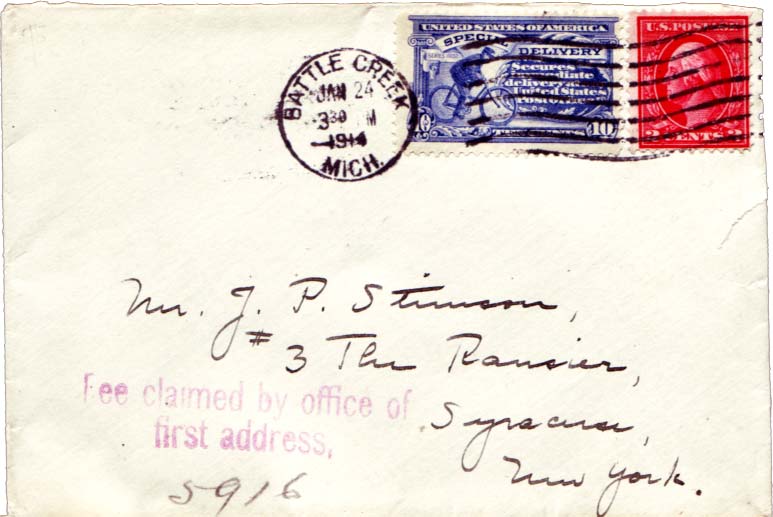 UNITED STATES OF AMERICA
SPECIAL DELIVERY
Secures
immediate
delivery
United States
10 10
U.S. POSTAGE
2 CENTS 2
BATTLE CREEK
JAN 24
3 30 M
1914
MICH.
Mr. J. P. Stimson,
# 3 The Ransier,
Syracuse,
New York.
Fee claimed by office of
first address,
5916